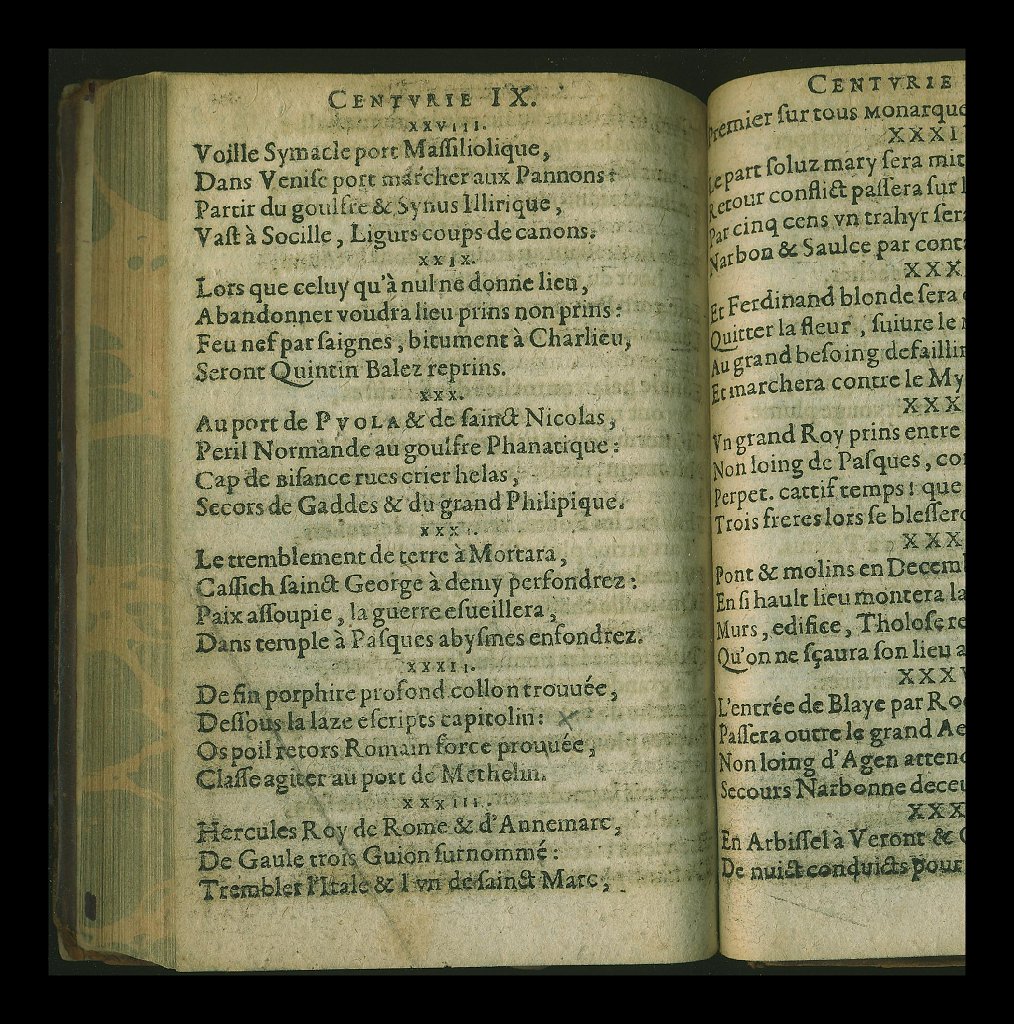 CENTVRIE IX.
XXVIII.
Voille Symacle port Massiliolique,
Dans Venise port marcher aux Pannons:
Partir du goulfre & Synus Illirique,
Vast à Socille, Ligurs coups de canons.
XXIX.
Lors que celuy qu'à nul ne donne lieu,
Abandonner voudra lieu prins non prins:
Feu nef par saignes, bitument à Charlieu,
Seront Quintin Balez reprins.
XXX.
Au port de PVOLA & de sainct Nicolas,
Peril Normande au goulfre Phanatique:
Cap de Bisance rues crier helas,
Secors de Gaddes & du grand Philipique.
XXXI.
Le tremblement de terre à Mortara,
Cassich sainct George à demy perfondrez:
Paix assoupie, la guerre esueillera,
Dans temple à Pasques abysmes enfondrez.
XXXII.
De fin porphire profond collon trouuée,
Dessous la laze escripts capitolin:
Os poil retors Romain force prouuée,
Classe agiter au port de Methelin.
XXXIII.
Hercules Roy de Rome & d'Annemarc,
De Gaule trois Guion surnommé:
Trembler l'Itale & l vn de sainct Marc,
CENTVRIE
Premier sur tous Monarque
XXXI
Le part soluz mary sera mit
Retour conflict passera sur l
Par cinq cens vn trahyr sera
Narbon & Saulce par conta
XXX
Et Ferdinand blonde sera
Quitter la fleur, suiure le
Au grand besoing defaillir
Et marchera contre le My
XXX
Vn grand Roy prins entre
Non loing de Pasques, co
Perpet. cattif temps! que
Trois freres lors se blessero
XXX
Pont & molins en Decem
En si hault lieu montera la
Murs, edifice, Tholose re
Qu'on ne sçaura son lieu a
XXXV
L'entrée de Blaye par Roc
Passera outre le grand Ae
Non loing d'Agen attend
Secours Narbonne deceu
XXX
En Arbissel à Veront & C
De nuict conduicts pour